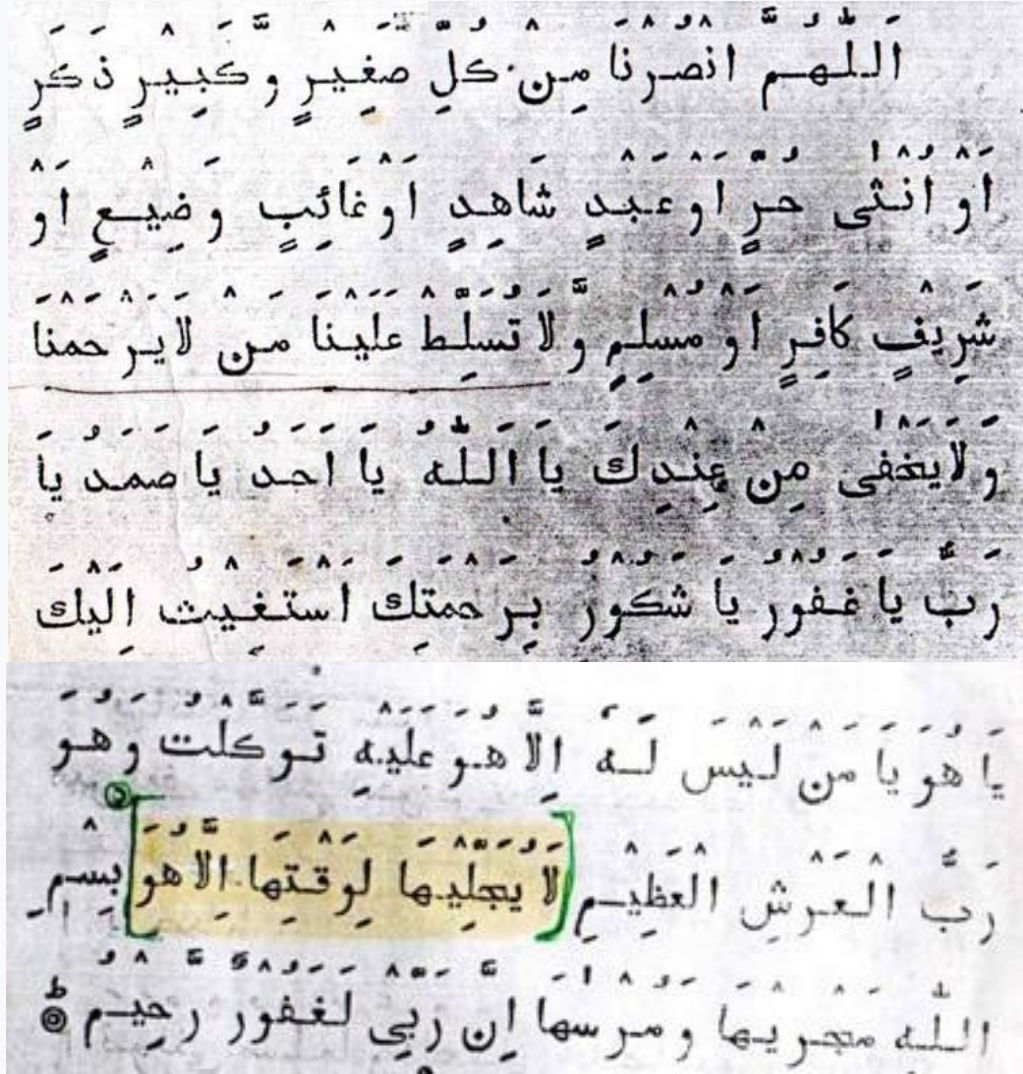 اَللّٰهُمَّ انْصُرْنَا مِنْ كُلِّ صَغِيْرٍ وَّكَبِيْرٍ ذَكَرٍ
اَوْ اُنْثٰى حُرٍّ اَوْ عَبْدٍ شَاهِدٍ اَوْ غَائِبٍ وَضِيْعٍ اَوْ
شَرِيْفٍ كَافِرٍ اَوْ مُسْلِمٍ وَّلَا تُسَلِّطْ عَلَيْنَا مَنْ لَا يَرْحَمْنَا
وَلَا يَخْفٰى مِنْ عِنْدِكَ يَا اَللّٰهُ يَا اَحَدُ يَا صَمَدُ يَا
رَبُّ يَا غَفُوْرُ يَا شَكُوْرُ بِرَحْمَتِكَ اَسْتَغِيْثُ اِلَيْكَ
يَا هُوَ يَا مَنْ لَيْسَ لَهُ اِلَّا هُوَ عَلَيْهِ تَوَكَّلْتُ وَهُوَ
رَبُّ الْعَرْشِ الْعَظِيْمِ [لَا يُجَلِّيْهَا لِوَقْتِهَا اِلَّا هُوَ] بِسْمِ
اللّٰهِ مَجْرٖيهَا وَمُرْسٰهَا اِنَّ رَبِّيْ لَغَفُوْرٌ رَّحِيْمٌ ط